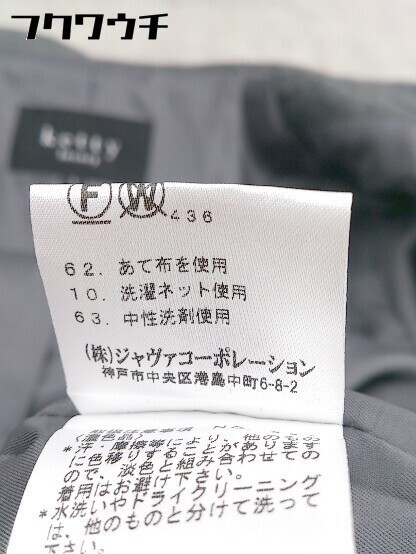 フクワウチ
ketty
F W
436
62. あて布を使用
10. 洗濯ネット使用
63. 中性洗剤使用
(株)ジャヴァコーポレーション
神戸市中央区港島中町6-8-2
(濃色品)
*汗・摩擦等により、他のもの
に色移りすることがあります
ので、淡色と組み合わせての
着用はお避け下さい。
*水洗いやドライクリーニング
は、他のものと分けて洗って
下さい。